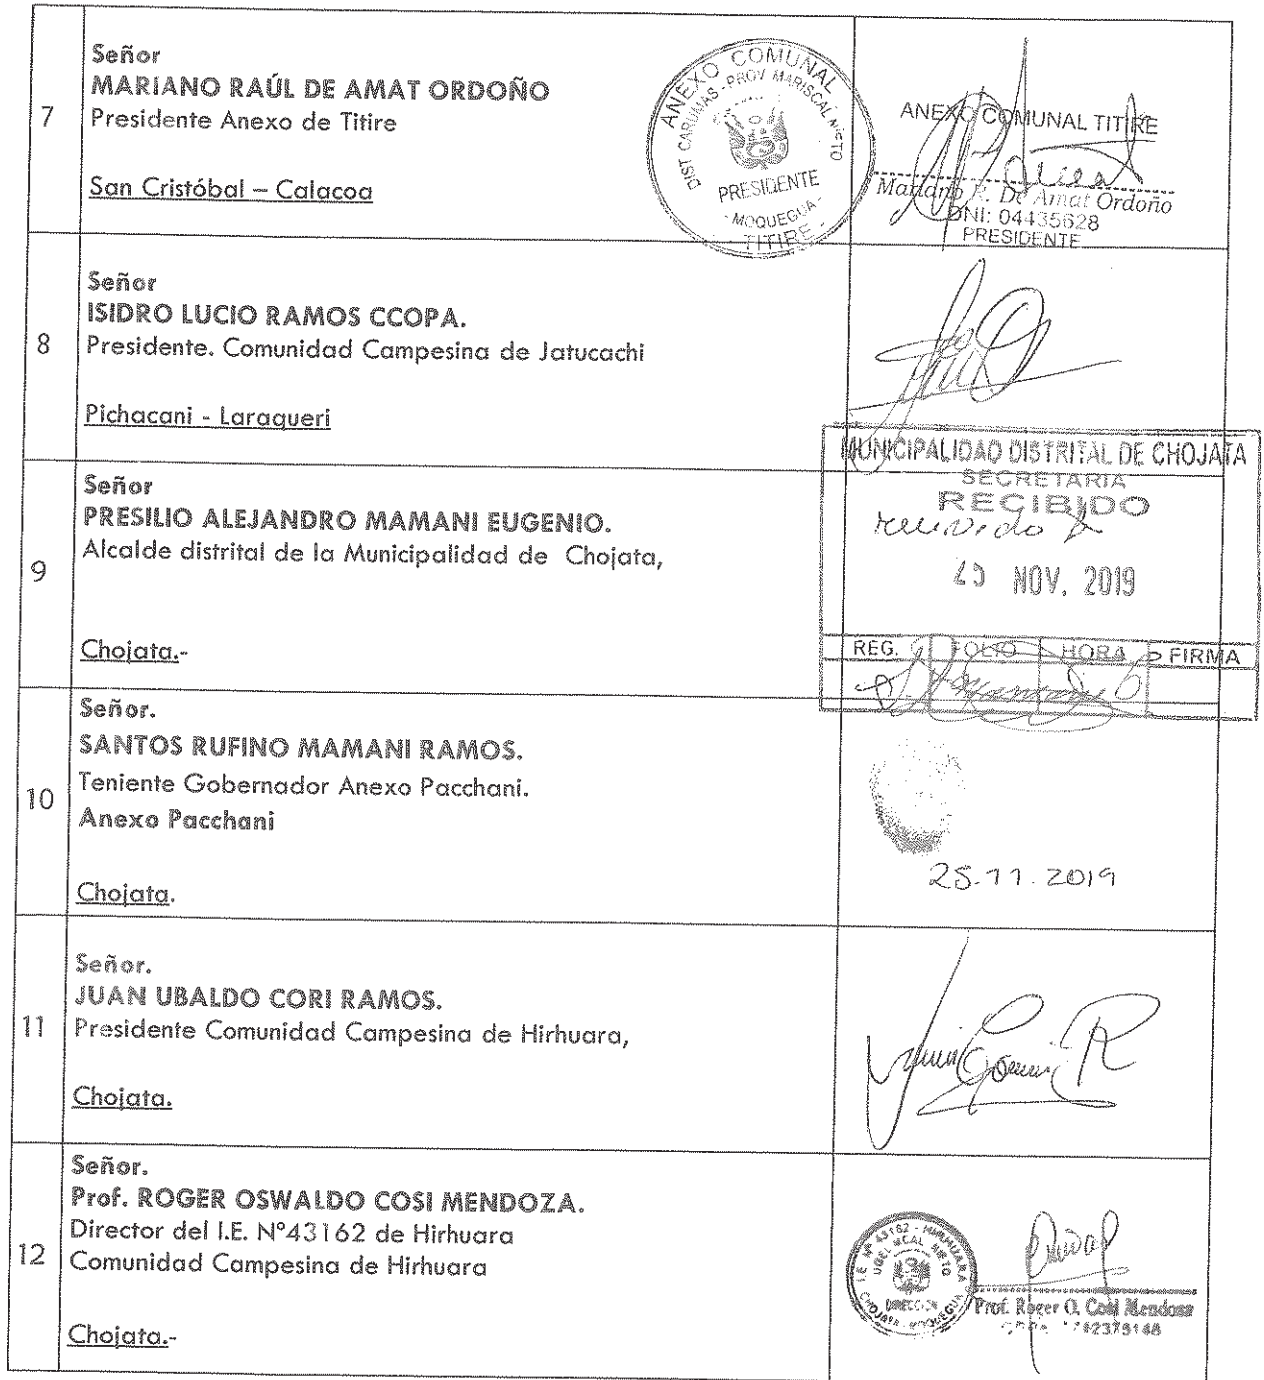 7
Señor
MARIANO RAÚL DE AMAT ORDOÑO
Presidente Anexo de Titire
San Cristóbal – Calacoa
ANEXO COMUNAL
DIST CARUMAS - PROV MARISCAL NIETO
PRESIDENTE
- MOQUEGUA -
- TITIRE -
ANEXO COMUNAL TITIRE
Mariano R. De Amat Ordoño
DNI: 04435628
PRESIDENTE
8
Señor
ISIDRO LUCIO RAMOS CCOPA.
Presidente. Comunidad Campesina de Jatucachi
Pichacani - Laraqueri
9
Señor
PRESILIO ALEJANDRO MAMANI EUGENIO.
Alcalde distrital de la Municipalidad de Chojata,
Chojata.-
MUNICIPALIDAD DISTRITAL DE CHOJATA
SECRETARIA
RECIBIDO
NOV. 2019
REG. FOLIO HORA FIRMA
10
Señor.
SANTOS RUFINO MAMANI RAMOS.
Teniente Gobernador Anexo Pacchani.
Anexo Pacchani
Chojata.
25.11.2019
11
Señor.
JUAN UBALDO CORI RAMOS.
Presidente Comunidad Campesina de Hirhuara,
Chojata.
12
Señor.
Prof. ROGER OSWALDO COSI MENDOZA.
Director del I.E. N°43162 de Hirhuara
Comunidad Campesina de Hirhuara
Chojata.-
I.E. Nº 43162 - HIRHUARA
UGEL MCAL NIETO
DIRECCION
CHOJATA - MOQUEGUA
Prof. Roger O. Cosi Mendoza